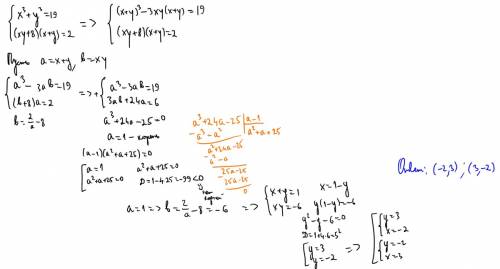 { x³+y³=19
(xy+8)(x+y)=2 => { (x+y)³-3xy(x+y)=19
(xy+8)(x+y)=2
Пусть a=x+y, b=xy
{ a³-3ab=19
(b+8)a=2 => + { a³-3ab=19
3ab+24a=6
b=2/a-8
a³+24a-25=0
a=1-корень
(a-1)(a²+a+25)=0
[ a=1
a²+a+25=0
a²+a+25=0
D=1-4·25=-99<0
нет корней
a³+24a-25 | a-1
-a³-a² | a²+a+25
a²+24a-25
-a²-a
25a-25
-25a-25
0
a=1 => b=2/a-8=-6 => { x+y=1
xy=-6
x=1-y
y(1-y)=-6
y²-y-6=0
D=1+4·6=5²
[ y=3
y=-2 => [ { y=3
x=-2
{ y=-2
x=3
Ответ: (-2,3) ; (3,-2)